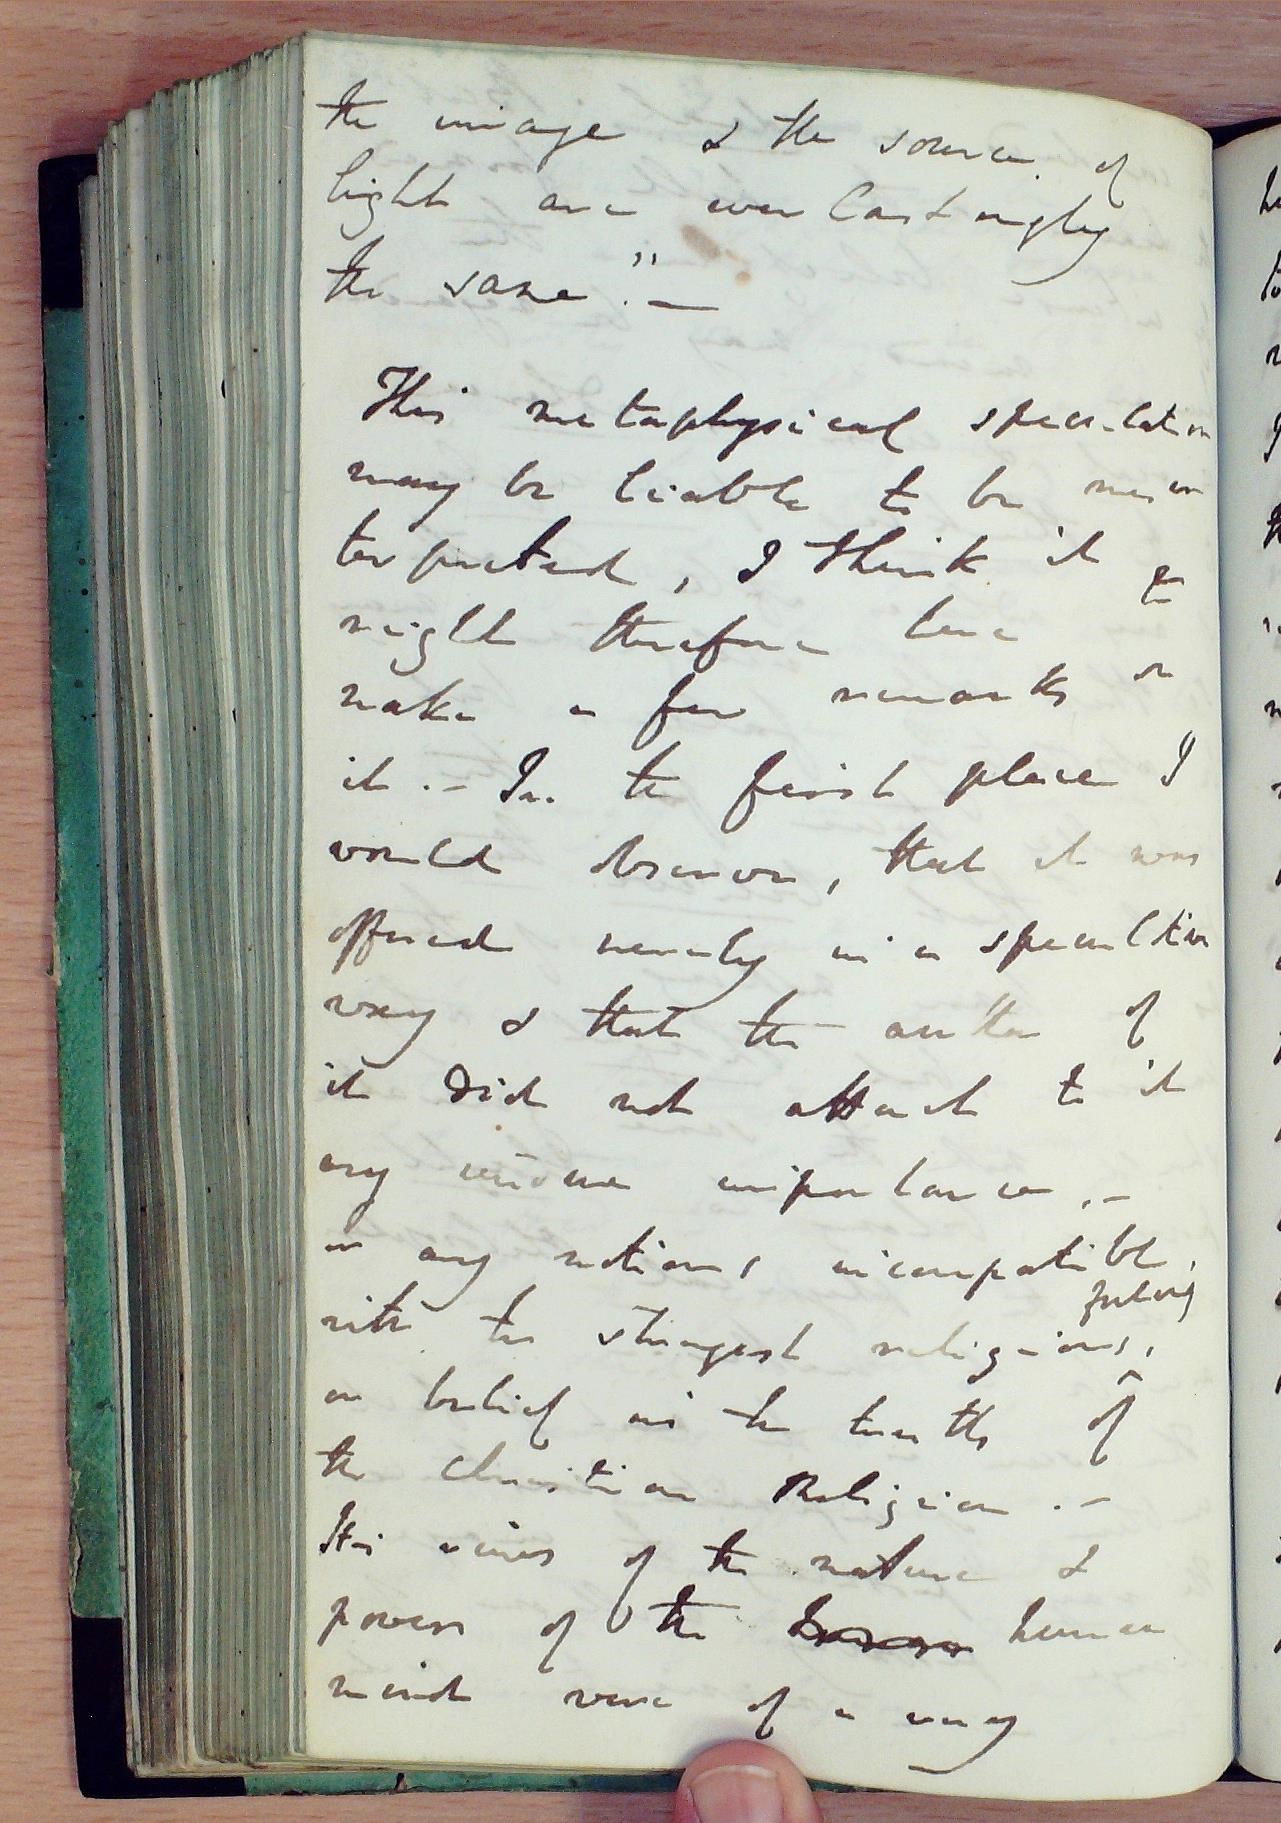 the image & the source of
light are ever lastingly
the same". —
This metaphysical speculation
may be liable to be misin
terpreted, I think it
might therefore here to
make a few remarks on
it. - In the first place I
would observe, that it was
offered merely in a specultive
way & that the author of
it did not attach to it
any undue importance, -
or any notions incompatible
with the strongest religious, feeling
or belief in the truths of
the Christian Religion. -
His views of the nature &
powers of the human
mind were of a very